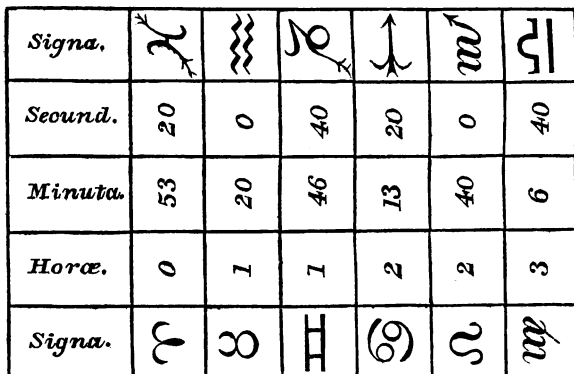 Signa. ♓ ♒ ♑ ♐ ♏ ♎
Secund. 20 0 40 20 0 40
Minuta. 53 20 46 13 40 6
Horæ. 0 1 1 2 2 3
Signa. ♈ ♉ ♊ ♋ ♌ ♍